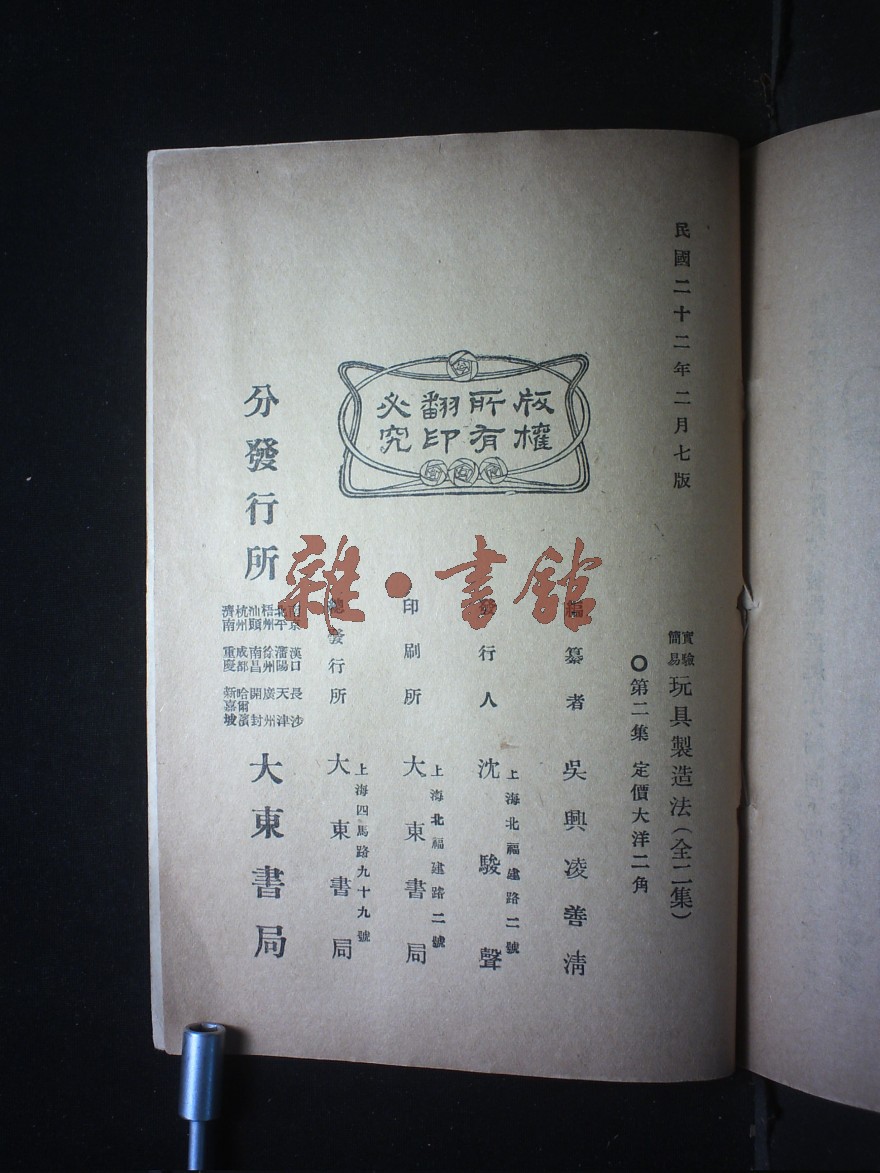 民國二十二年二月七版
實驗
簡易
玩具製造法（全二集）
○第二集 定價大洋二角
版權
所有
翻印
必究
編纂者 吳興凌善淸
發行人 沈駿聲
上海北福建路二號
印刷所 大東書局
上海北福建路二號
總發行所 大東書局
上海四馬路九十九號
分發行所
南京 漢口 長沙
北平 瀋陽 天津
梧州 徐州 廣州
汕頭 南昌 開封
杭州 成都 哈爾濱
濟南 重慶 新嘉坡
大東書局
雜·書館